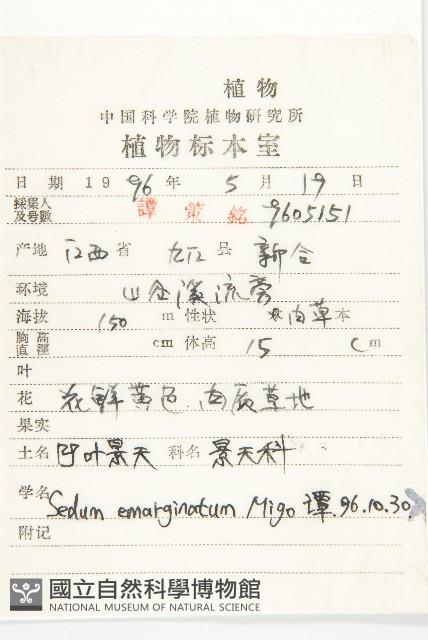 植物
中国科学院植物研究所
植物标本室
日期 1996年 5月 19日
採集人及号數 譚策銘 9605151
产地 江西省 九江县 新合
环境 山谷溪流旁
海拔 150 m 性状 肉草本
胸高直徑 cm 体高 15 cm
叶
花 花鲜黄色
果实
土名 凹叶景天 科名 景天科
学名 Sedum emarginatum Migo 譚.96.10.30
附记
國立自然科學博物館
NATIONAL MUSEUM OF NATURAL SCIENCE